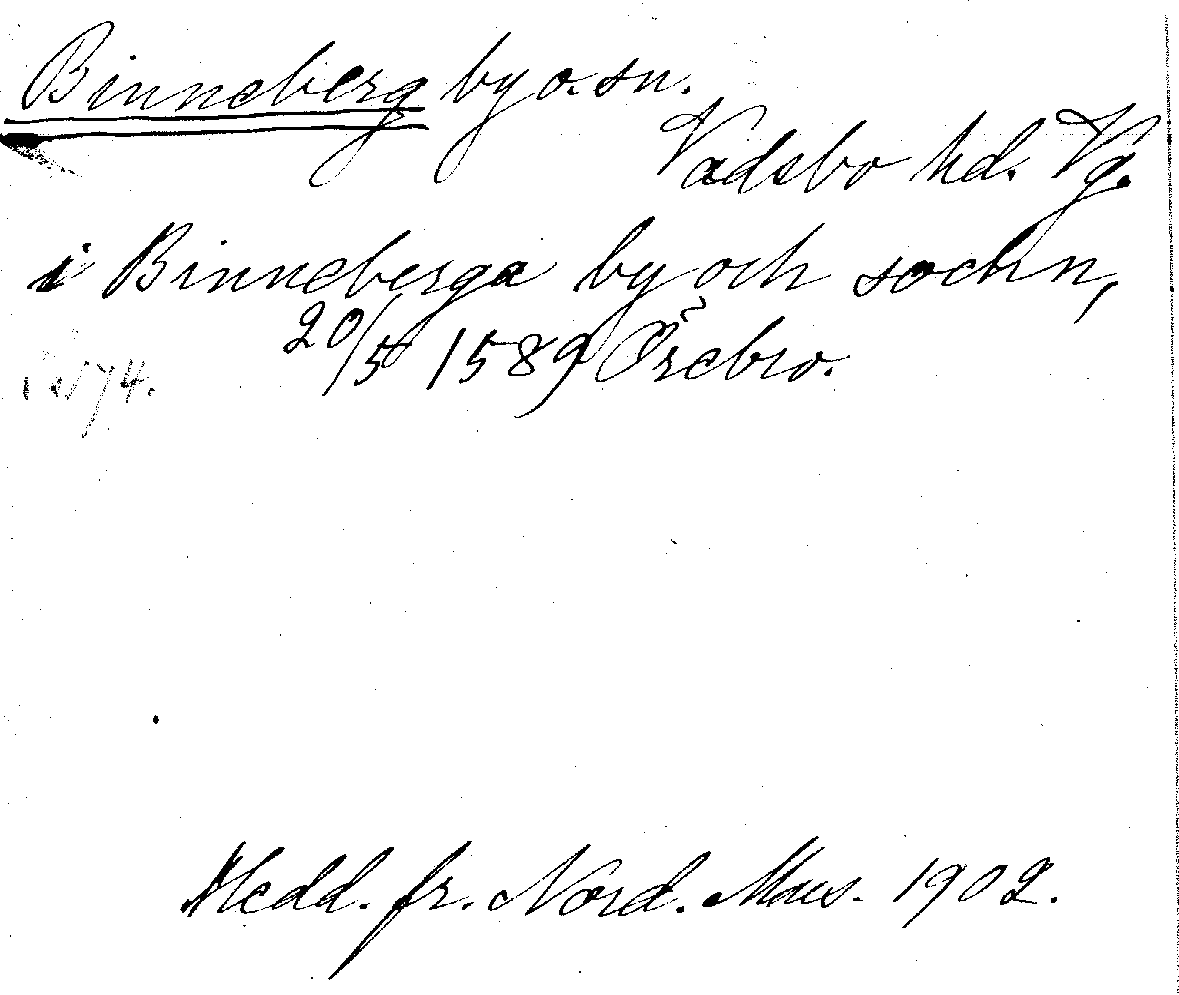 Binneberg by o. sn.
Vadsbo hd. Vg.
i Binneberga by och sochn,
20/5 1589 Örebro.
s. 174.
Medd. fr. Nord. Mus. 1902.